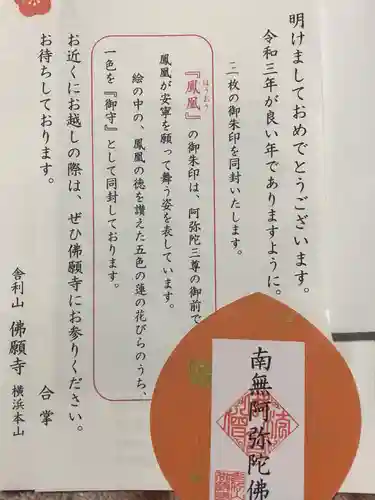 明けましておめでとうございます。
令和三年が良い年でありますように。
二枚の御朱印を同封いたします。
『鳳凰』の御朱印は、阿弥陀三尊の御前で
ほうおう
鳳凰が安寧を願って舞う姿を表しています。
絵の中の、鳳凰の徳を讃えた五色の蓮の花びらのうち、
一色を『御守』として同封しております。
お近くにお越しの際は、ぜひ佛願寺にお参りください。
お待ちしております。
合掌
舎利山 佛願寺 横浜本山
南無阿弥陀佛